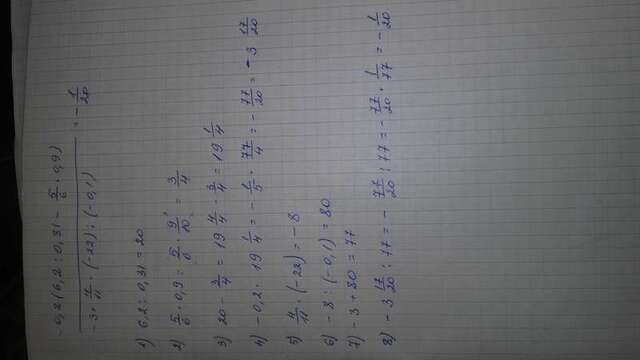 -0,2(6,2 : 0,31 - 5/6 · 0,9)
-3 + 4/11 · (-22) : (-0,1) = -1/20
1) 6,2 : 0,31 = 20
2) 5/6 · 0,9 = 5/6 · 9/10 = 3/4
3) 20 - 3/4 = 19 4/4 - 3/4 = 19 1/4
4) -0,2 · 19 1/4 = -1/5 · 77/4 = -77/20 = -3 17/20
5) 4/11 · (-22) = -8
6) -8 : (-0,1) = 80
7) -3 + 80 = 77
8) -3 17/20 : 77 = -77/20 : 77 = -77/20 · 1/77 = -1/20